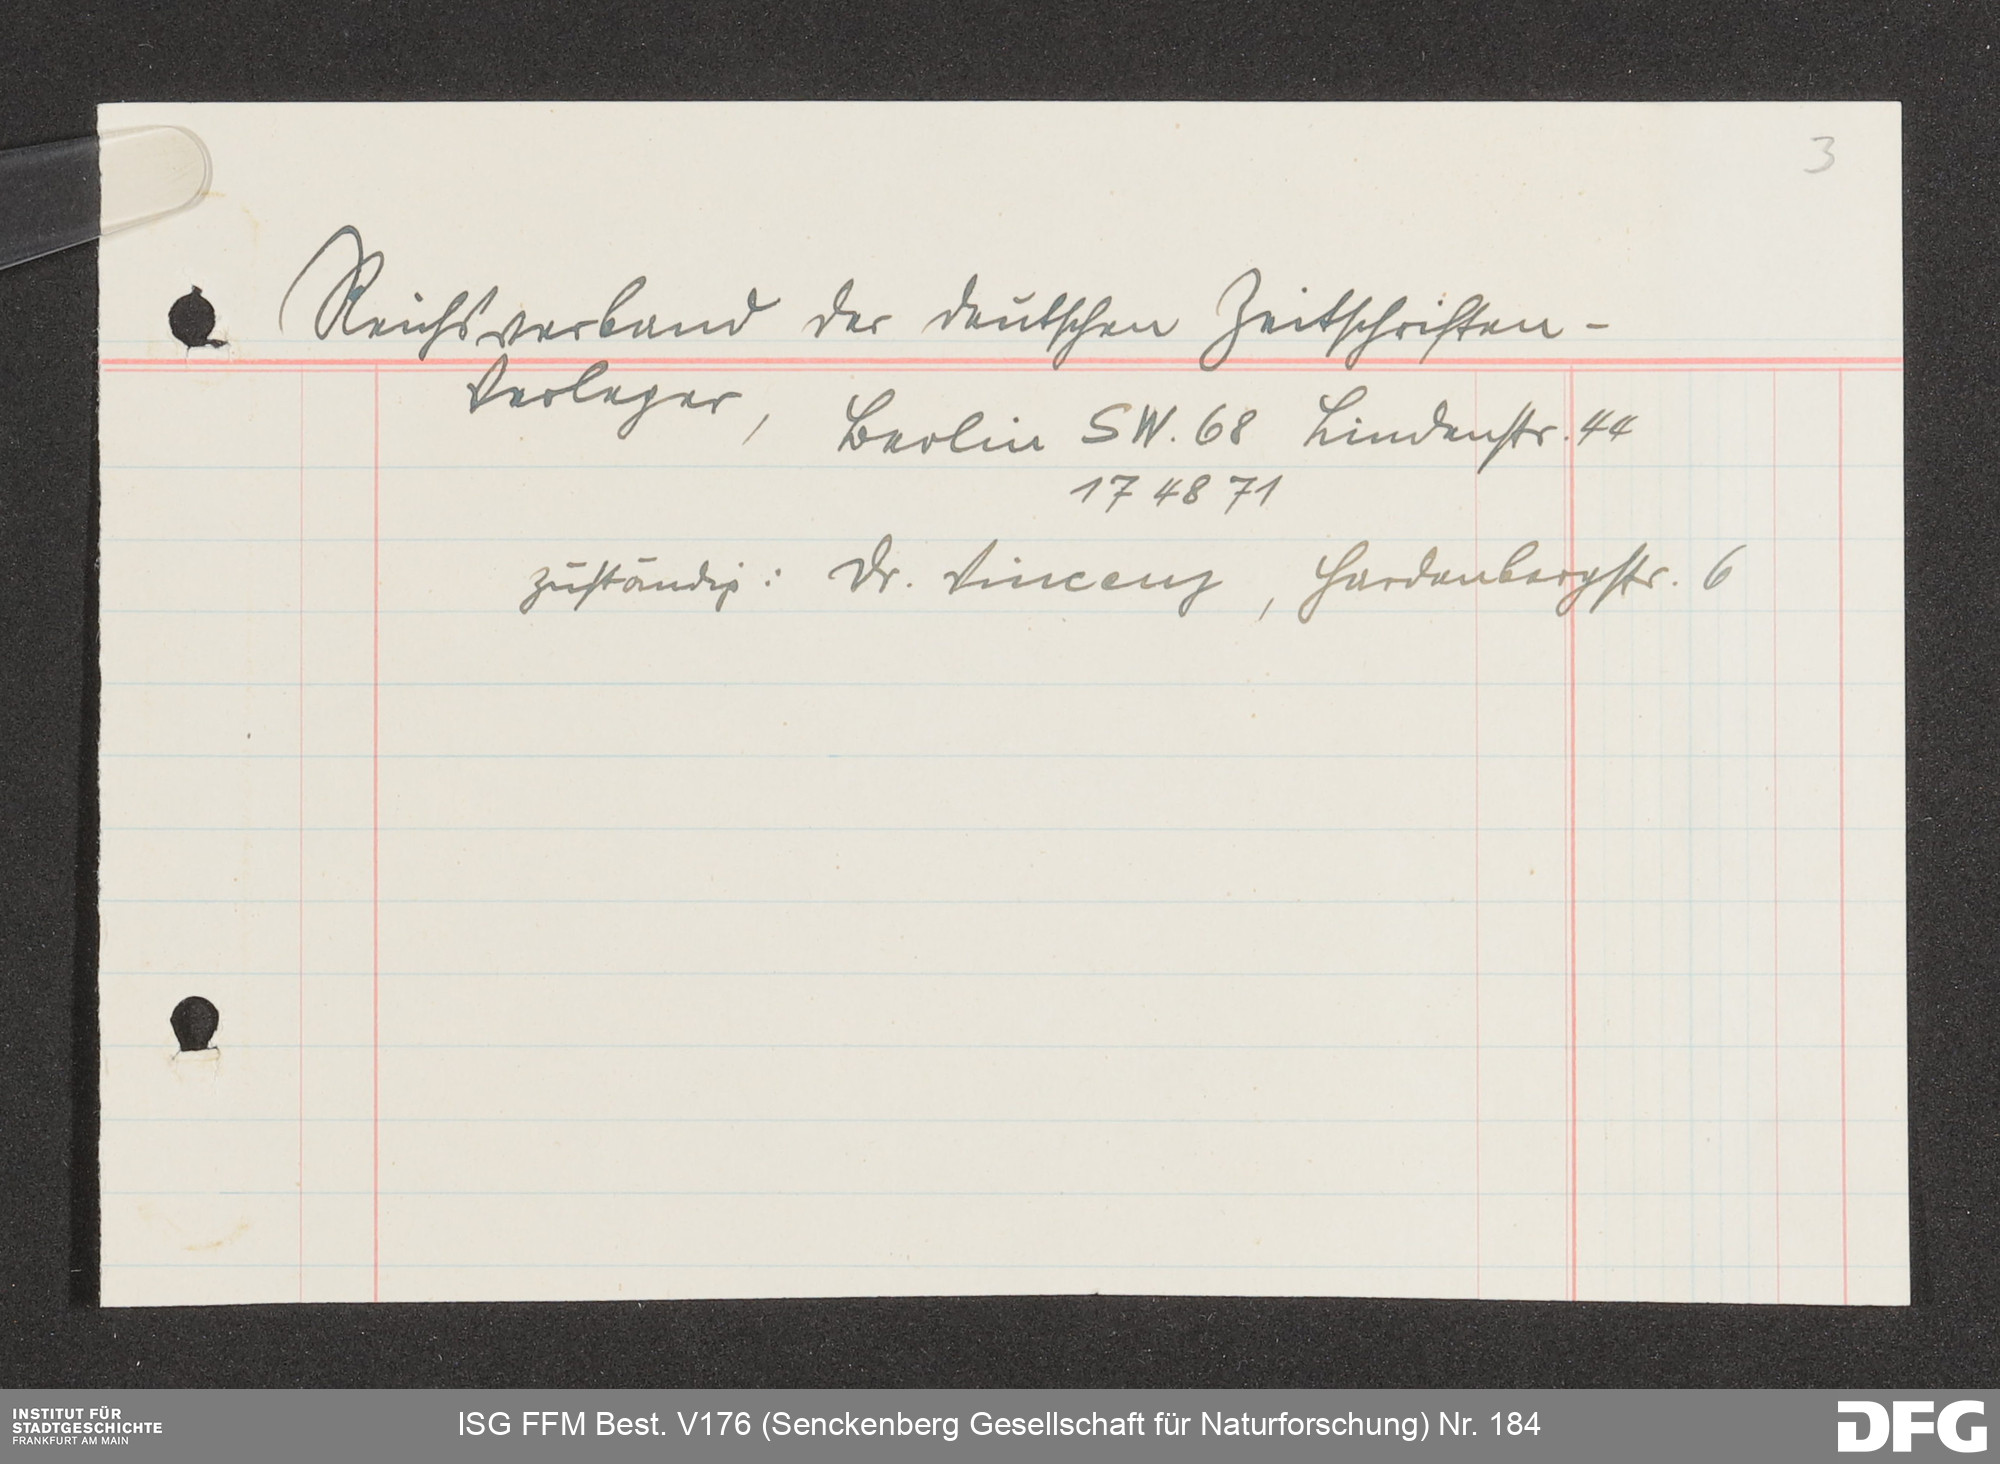 3
Reichsverband der deutschen Zeitschriften-
Verleger, Berlin SW. 68 Lindenstr. 44
17 48 71
zuständig: Dr. Vincenz, Hardenbergstr. 6
INSTITUT FÜR
STADTGESCHICHTE
FRANKFURT AM MAIN
ISG FFM Best. V176 (Senckenberg Gesellschaft für Naturforschung) Nr. 184
DFG